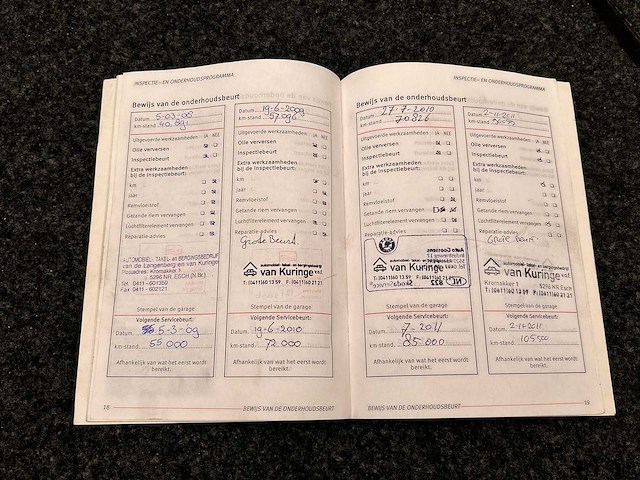 INSPECTIE- EN ONDERHOUDSPROGRAMMA
Bewijs van de onderhoudsbeurt
Datum 5-03-08
km-stand
Uitgevoerde werkzaamheden JA NEE
Olie verversen
Inspectiebeurt
Extra werkzaamheden
bij de Inspectiebeurt:
km
jaar
Remvloeistof
Getande riem vervangen
Luchtfilterelement vervangen
Reparatie-advies
AUTOMOBIEL-, TAKEL- en BERGINGSBEDRIJF
van de Langenberg en van Kuringe
Postadres: Kromakker 1
5296 NR ESCH (N.Br.)
Tel. 0411 - 601359
Fax 0411 - 602121
Stempel van de garage
Volgende Servicebeurt:
Datum 5-3-09
km-stand 55 000
Afhankelijk van wat het eerst wordt
bereikt.
18
Datum 19-6-2009
km-stand 57096
Uitgevoerde werkzaamheden JA NEE
Olie verversen
Inspectiebeurt
Extra werkzaamheden
bij de Inspectiebeurt:
km
jaar
Remvloeistof
Getande riem vervangen
Luchtfilterelement vervangen
Reparatie-advies
Grote Beurt
automobiel- takel- en bergingsbedrijf
van Kuringe
T: (0411) 60 13 59 F: (0411) 60 21 21
Stempel van de garage
Volgende Servicebeurt:
Datum 19-6-2010
km-stand 72.000
Afhankelijk van wat het eerst wordt
bereikt.
BEWIJS VAN DE ONDERHOUDSBEURT
INSPECTIE- EN ONDERHOUDSPROGRAMMA
Bewijs van de onderhoudsbeurt
Datum 27-7-2010
km-stand 70826
Uitgevoerde werkzaamheden JA NEE
Olie verversen
Inspectiebeurt
Extra werkzaamheden
bij de Inspectiebeurt:
km
jaar
Remvloeistof
Getande riem vervangen
Luchtfilterelement vervangen
Reparatie-advies
automobiel- takel- en bergingsbedrijf
van Kuringe
T: (0411) 60 13 59
Stempel van de garage
Volgende Servicebeurt:
Datum 7-2011
km-stand 85.000
Afhankelijk van wat het eerst wordt
bereikt.
BEWIJS VAN DE ONDERHOUDSBEURT
Datum 2-11-2011
km-stand
Uitgevoerde werkzaamheden JA NEE
Olie verversen
Inspectiebeurt
Extra werkzaamheden
bij de Inspectiebeurt:
km
jaar
Remvloeistof
Getande riem vervangen
Luchtfilterelement vervangen
Reparatie-advies
Grote Beurt
automobiel- takel- en bergingsbedrijf
van Kuringe
Kromakker 1 5296 NR ESCH
T: (0411) 60 13 59 F: (0411) 60 21 21
Stempel van de garage
Volgende Servicebeurt:
Datum 2-11-2011
km-stand 105500
Afhankelijk van wat het eerst wordt
bereikt.
19